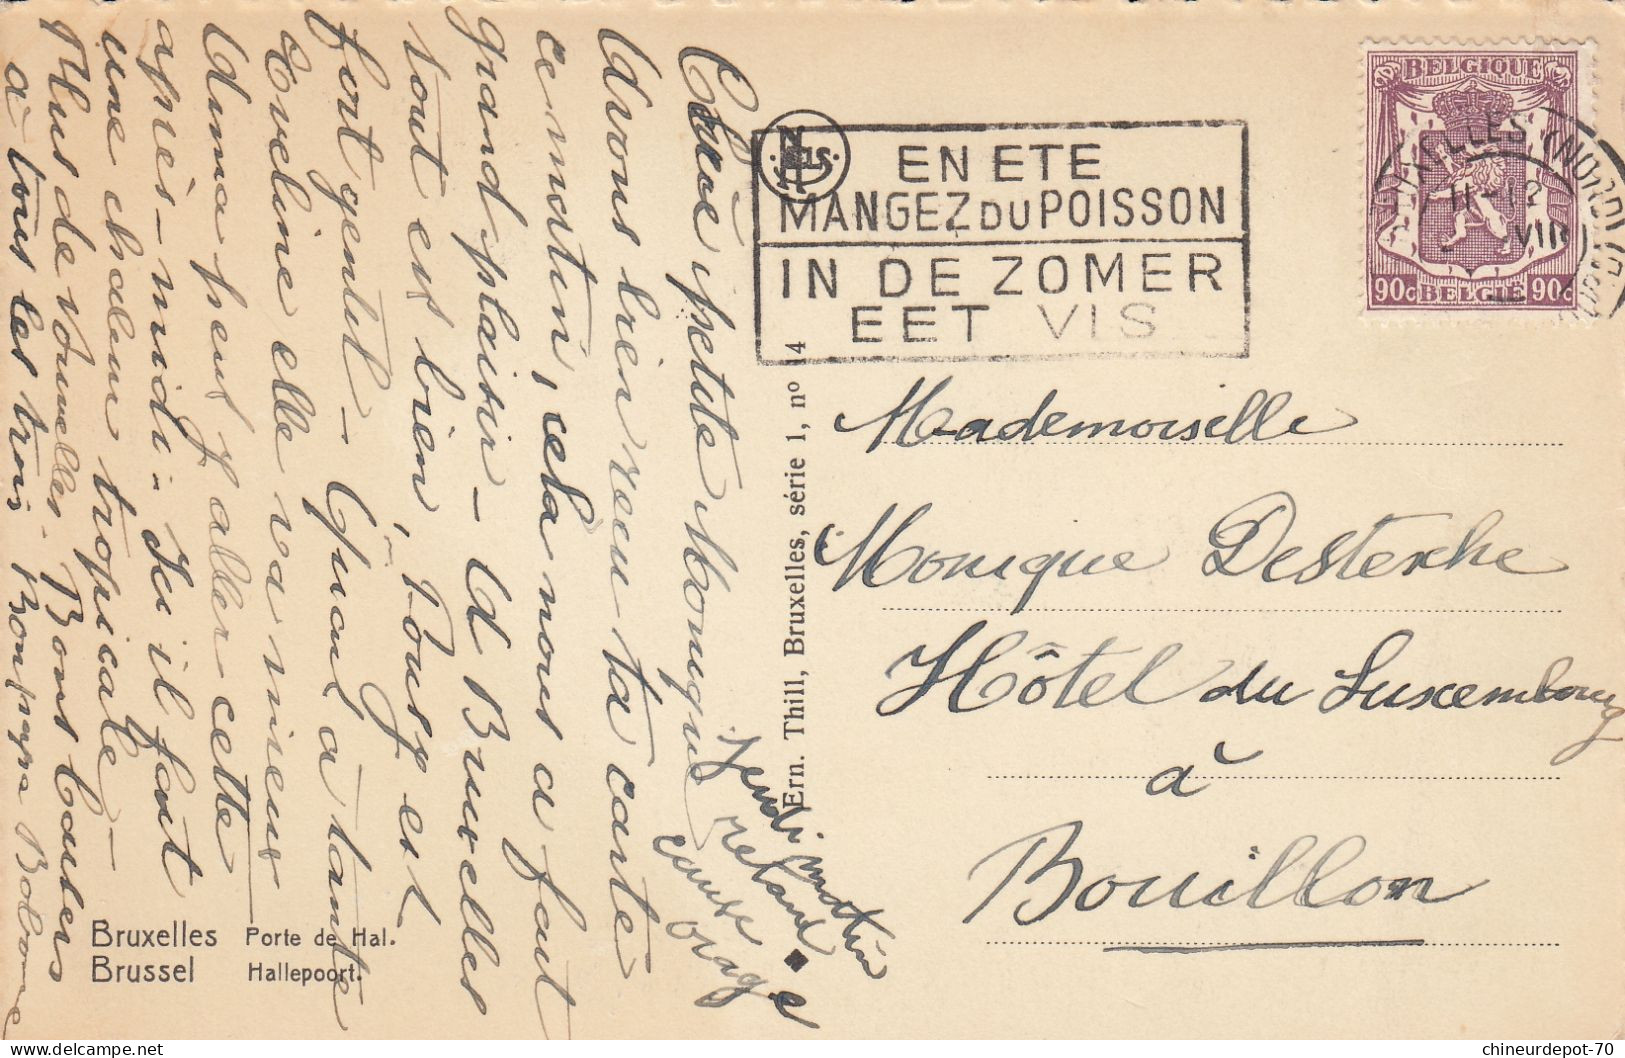 Chère petite Monique
Avons bien reçu ta carte
ce matin, cela nous a fait
grand plaisir — A Bruxelles
tout est bien, Pouf est
fort gentil — Quant à tante
Eveline elle va mieux
Anna peut y aller cette
après-midi. Ici il fait
une chaleur tropicale —
Plus de nouvelles. Bons baisers
à tous les trois. Bonpapa Bobonne
Jeudi matin
retard
cause
orage
NELS
EN ETE
MANGEZ DU POISSON
IN DE ZOMER
EET VIS
BELGIQUE
90c BELGIE 90c
BRUXELLES (NORD)
11-12
VIII
Ern. Thill, Bruxelles, série 1, nº 14
Mademoiselle
Monique Desterche
Hôtel du Luxembourg
à
Bouillon
Bruxelles Porte de Hal.
Brussel Hallepoort.
chineurdepot-70